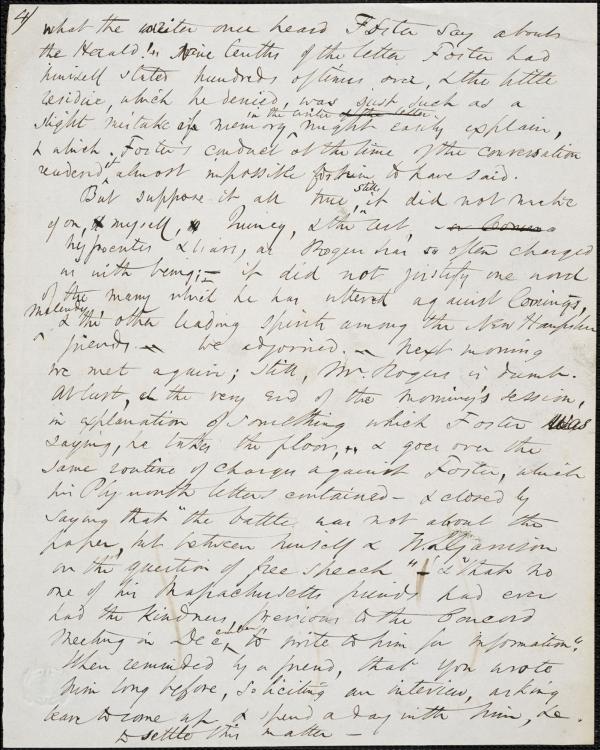 4/
what the writer once heard Foster say about
the Herald!" Nine tenths of the letter Foster had
himself stated hundreds of times over, & the little
residue, which he denied, was just such as a
in the writer of the letter
slight mistake of memory, might easily explain,
& which Foster's conduct at the time of the conversation
rendered it almost impossible for him to have said.
But suppose it all true, still, it did not make
you, & myself, Quincy, & the rest,
hypocrites & liars, as Rogers has so often charged
us with being; – it did not justify one word
of the many which he has uttered against Comings,
& the other leading spirits among the New Hampshire
friends. – We adjourned. – Next morning
we met again; still, Mr Rogers is dumb.
At last, at the very end of the morning's session,
in explanation of something which Foster was
saying, he takes the floor, & goes over the
same routine of charges against Foster, which
his Plymouth letters contained – & closed by
saying that "the battle was not about the
paper, but between himself & Wm Garrison
on the question of free speech" – & "that no
one of his Massachusetts friends had ever
had the kindness, previous to the Concord
meeting in Dec. even, to write to him for information".
When reminded by a friend, that you wrote
him long before, soliciting an interview, asking
leave to come up & spend a day with him, &c.
to settle this matter –